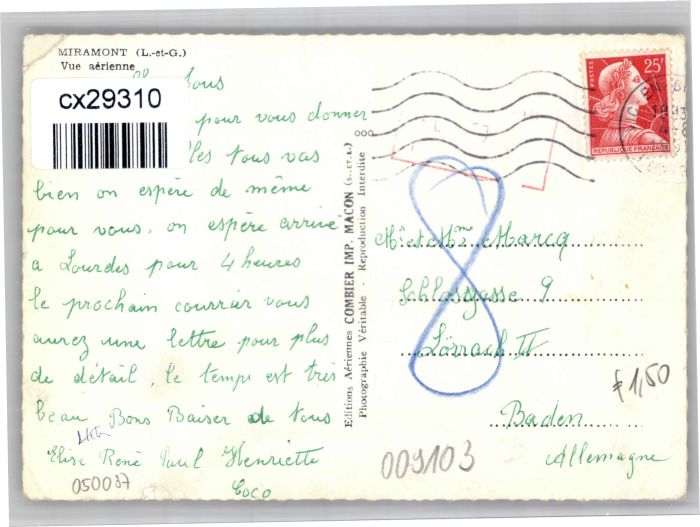 MIRAMONT (L.-et-G.)
Vue aérienne
cx29310
tous
pour vous donner
tous vas
bien on espère de même
pour vous, on espère arrive
a Lourdes pour 4 heures
le prochain courrier vous
aurez une lettre pour plus
de détail, le temps est très
beau Bons Baiser de tous
Elise René Paul Henriette
Coco
050087
Editions Aériennes COMBIER IMP. MACON (S.-et-L.)
Photographie Véritable - Reproduction Interdite
25F
POSTES
REPUBLIQUE FRANÇAISE
Mr et Mme Marcq
Schlosgasse 9
Lörrach II
Baden
Allemagne
1,50
009103